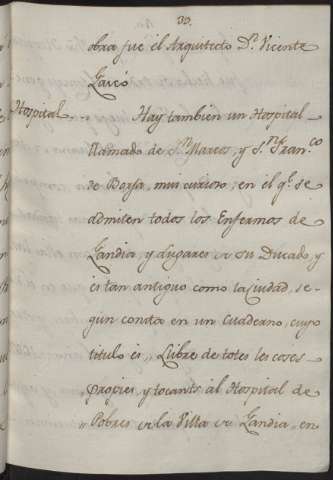 39.
obra fue el Arquitecto Dn. Vicente
Gasco
Hospital... Hay tambien un Hospital
llamado de Sn. Marcos, y Sn. Franco.
de Borja, mui curioso; en el qe. se
admiten todos los Enfermos de
Gandia, y Lugares de su Ducado, y
es tan antiguo como la Ciudad, se-
gun consta en un Cuaderno, cuyo
titulo es „ Llibre de totes les coses
„ propies, y tocants al Hospital de
„ Pobres de la Villa de Gandia, en